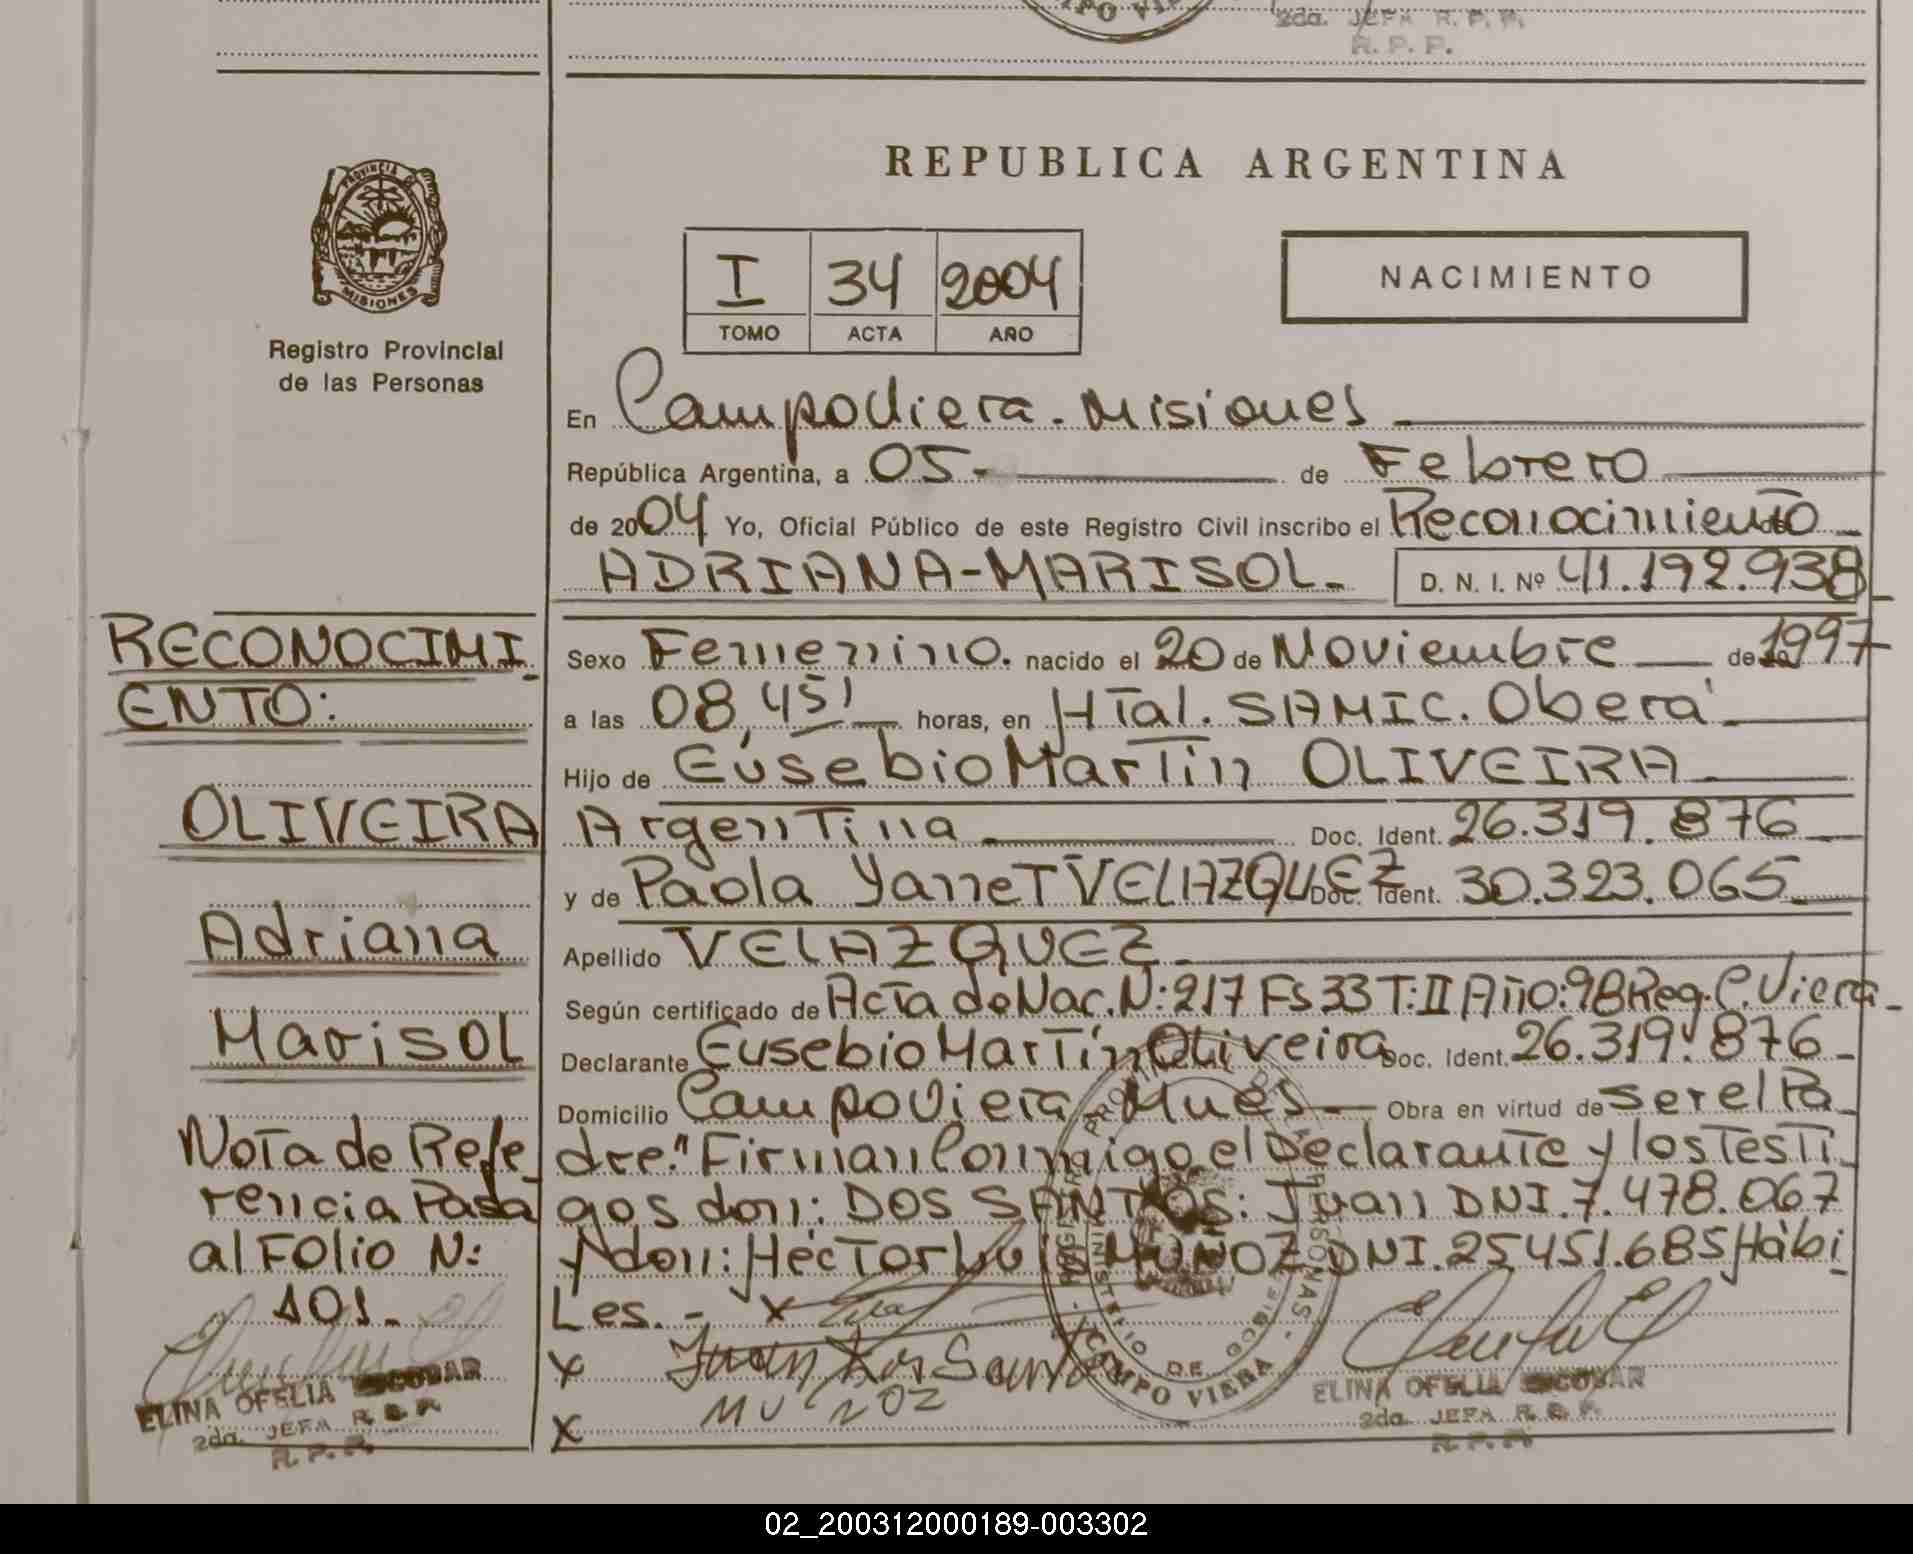 2da. JEFA R. P. P.
R. P. P.
PO VIE
REPUBLICA ARGENTINA
PROVINCIA DE
MISIONES
I 34 2004
TOMO ACTA AÑO
NACIMIENTO
Registro Provincial
de las Personas
En CampoViera. Misiones
República Argentina, a 05 de Febrero
de 2004 Yo, Oficial Público de este Registro Civil inscribo el Reconocimiento
ADRIANA-MARISOL. D. N. I. Nº 41.192.938
RECONOCIMI
ENTO:
OLIVEIRA
Adriana
Marisol
Nota de Refe
rencia Pasa
al Folio N:
101.
ELINA OFELIA ESCOBAR
2da. JEFA R. P. P.
R. P. P.
Sexo Femenino. nacido el 20 de Noviembre de 1997
a las 08,45' horas, en HTal. SAMIC. Oberá
Hijo de Eusebio Martín OLIVEIRA
Argentina Doc. Ident. 26.319.876
y de Paola Yanet VELAZQUEZ Doc. Ident. 30.323.065
Apellido VELAZQUEZ
Según certificado de Acta de Nac. N:217 Fs 33 T:II Año:98 Reg. C. Viera
Declarante Eusebio Martín Oliveira Doc. Ident. 26.319.876
Domicilio CampoViera Mnes Obra en virtud de ser el Pa
dre." Firman Conmigo el Declarante y los Testi
gos don: DOS SANTOS: Juan DNI.7.478.067
y don: Héctor Luis MUÑOZ DNI.25451.685 Hábi
Les.- x
x Juan Dos Santos
x MUÑOZ
MINISTERIO DE GOBIERNO
CAMPO VIERA
ELINA OFELIA ESCOBAR
2da. JEFA R. P. P.
R. P. P.
02_200312000189-003302